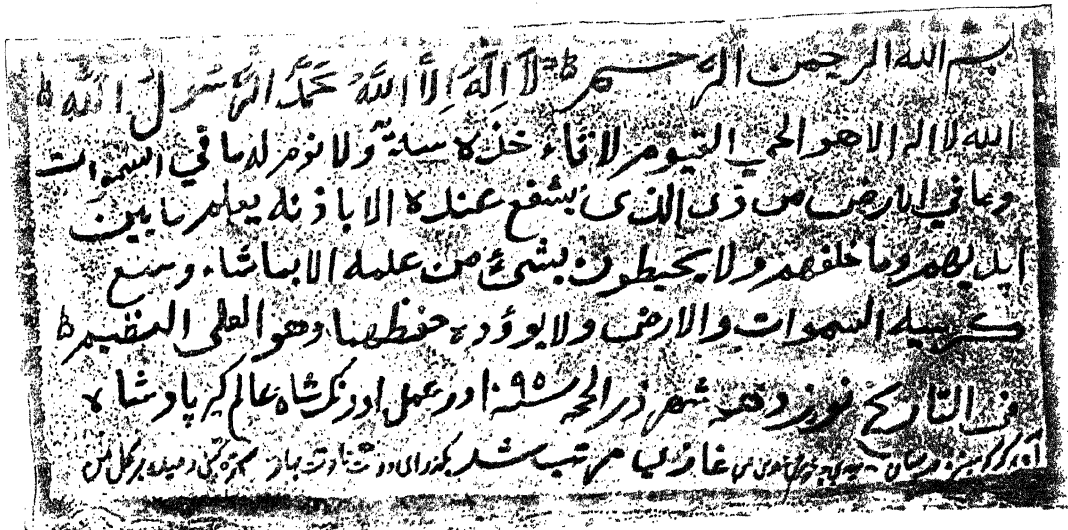 بسم الله الرحمن الرحيم لَا اِلٰهَ اِلَّا اللّٰهُ محمَّد الرَّسول اللّٰه
الله لا اله الا هو الحي القيوم لا تاء خذه سنة ولا نوم له ما في السموات
وما في الارض من ذى الذى يشفع عنده الا باذنه يعلم ما بين
ايديهم وما خلفهم ولا يحيطون بشئ من علمه الا بما شاء وسع
كرسيه السموات والارض ولا يوؤده حفظهما وهو العلى العظيم
فى التاريخ نوزدهم شهر ذى الحجه سنه ١٠٩٥ در عمل اورنكشاه عالم كير پادشاه
غازى مرتب شد